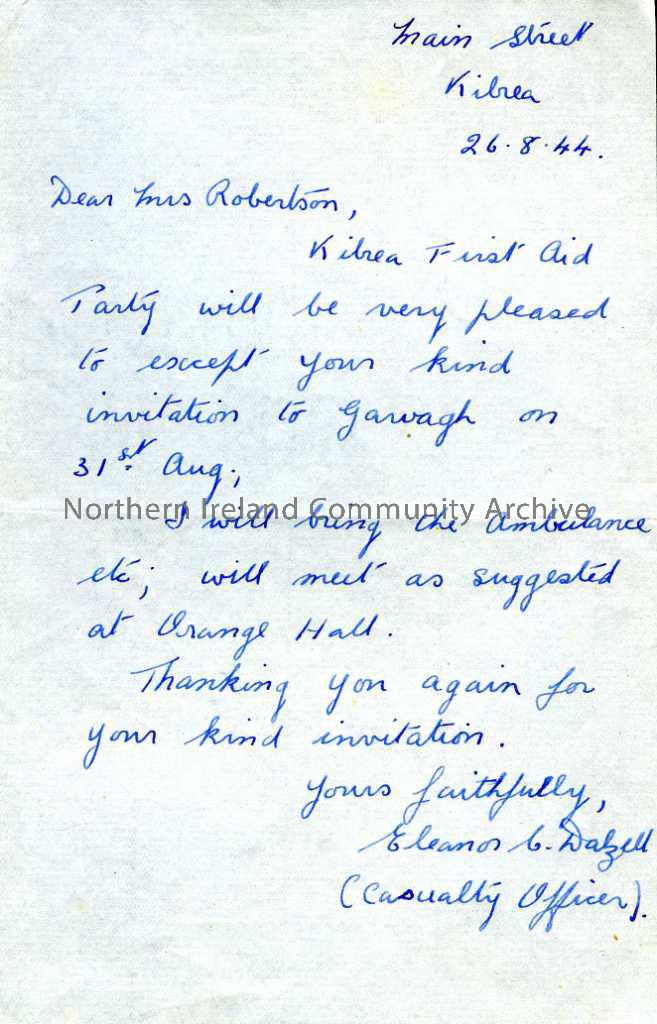 Main Street
Kilrea
26.8.44.
Dear Mrs Robertson,
Kilrea First Aid
Party will be very pleased
to except your kind
invitation to Garvagh on
31st Aug;
Northern Ireland Community Archive
I will bring the Ambulance
etc; will meet as suggested
at Orange Hall.
Thanking you again for
your kind invitation.
Yours faithfully,
Eleanor C. Dalzell
(Casualty Officer).